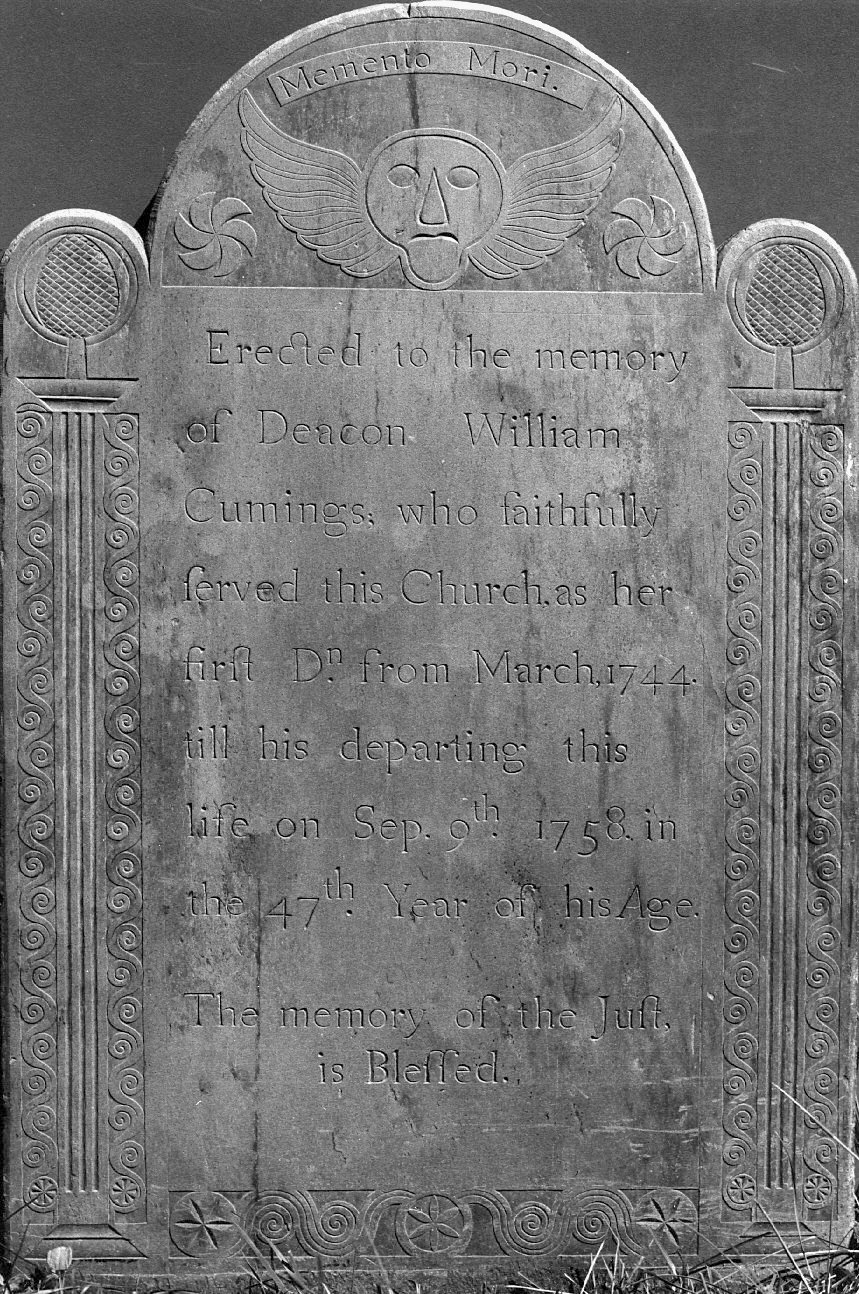 Memento Mori.
Erected to the memory
of Deacon William
Cumings; who faithfully
ſerved this Church, as her
firſt Dⁿ. from March, 1744.
till his departing this
life on Sep. 9th. 1758. in
the 47th. Year of his Age.
The memory of the Juſt,
is Bleſſed.